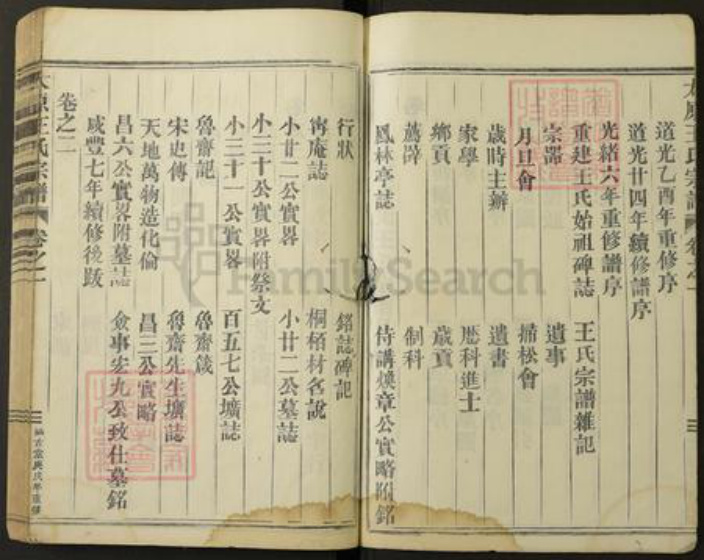 太原王氏宗譜 卷之一
道光乙酉年重修序
道光廿四年續修譜序
光緒六年重修譜序
重建王氏始祖碑誌 王氏宗譜雜記
宗器 遺事
月旦會 掃松會
歲時主辦 遺書
家學 歷科進士
鄉貢 歲貢
薦辟 制科
鳳林亭誌 侍講煥章公實略附銘
行狀 銘誌碑記
甯庵誌 桐栢材名說
小廿一公實畧 小廿二公墓誌
小三十公實畧附祭文
小三十一公實畧 百五七公壙誌
魯齋記 魯齋箴
宋史傳 魯齋先生壙誌
天地萬物造化倫 昌三公實略
昌六公實畧附墓誌 僉事宏九公致仕墓銘
咸豐七年續修後跋
卷之二
太原王氏宗譜 卷之一
FamilySearch